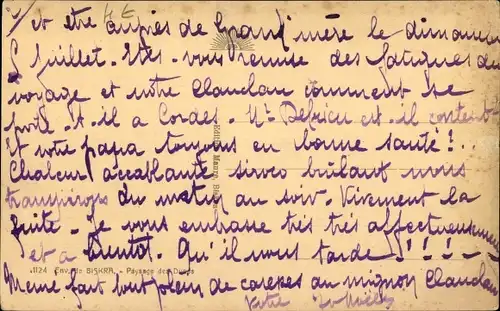 et être auprès de Grand'mère le dimanche
5 Juillet. Etes-vous remise des fatigues du
voyage et notre Clauclau comment se
porte-t-il a Cordes. Mr est-il content
Et votre papa toujours en bonne santé!..
Chaleur accablante siroco brûlant nous
transpirons du matin au soir. Vivement la
fuite. Je vous embrasse très très affectueusement
et a bientôt. Qu'il nous tarde!!!!
1124 Env. de BISKRA. - Paysage des Dunes
Mémé fait tout plein de caresses au mignon Clauclau
Votre